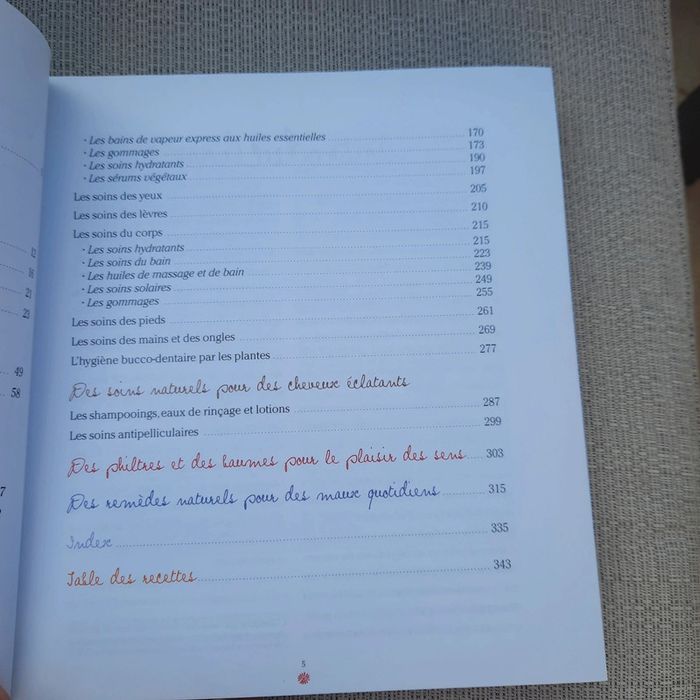 · Les bains de vapeur express aux huiles essentielles 170
· Les gommages 173
· Les soins hydratants 190
· Les sérums végétaux 197
Les soins des yeux 205
Les soins des lèvres 210
Les soins du corps 215
· Les soins hydratants 215
· Les soins du bain 223
· Les huiles de massage et de bain 239
· Les soins solaires 249
· Les gommages 255
Les soins des pieds 261
Les soins des mains et des ongles 269
L'hygiène bucco-dentaire par les plantes 277
Des soins naturels pour des cheveux éclatants
Les shampooings, eaux de rinçage et lotions 287
Les soins antipelliculaires 299
Des philtres et des baumes pour le plaisir des sens 303
Des remèdes naturels pour des maux quotidiens 315
Index 335
Table des recettes 343
5
12
16
21
23
49
58
7